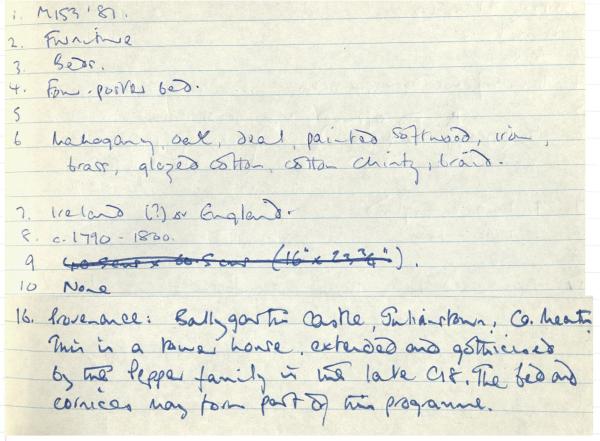 1. M153 '81.
2. Furniture
3. Beds.
4. Four-poster bed.
5
6 Mahogany, oak, deal, painted softwood, iron,
brass, glazed cotton, cotton chintz, braid.
7. Ireland (?) or England.
8. c. 1790 - 1800.
9 40.5cms x 60.5cms (16" x 23¾").
10 None
16. Provenance: Ballygarth Castle, Julianstown, Co. Meath
This is a tower house, extended and gothicised
by the Pepper family in the late C18. The bed and
cornices may form part of this progamme.